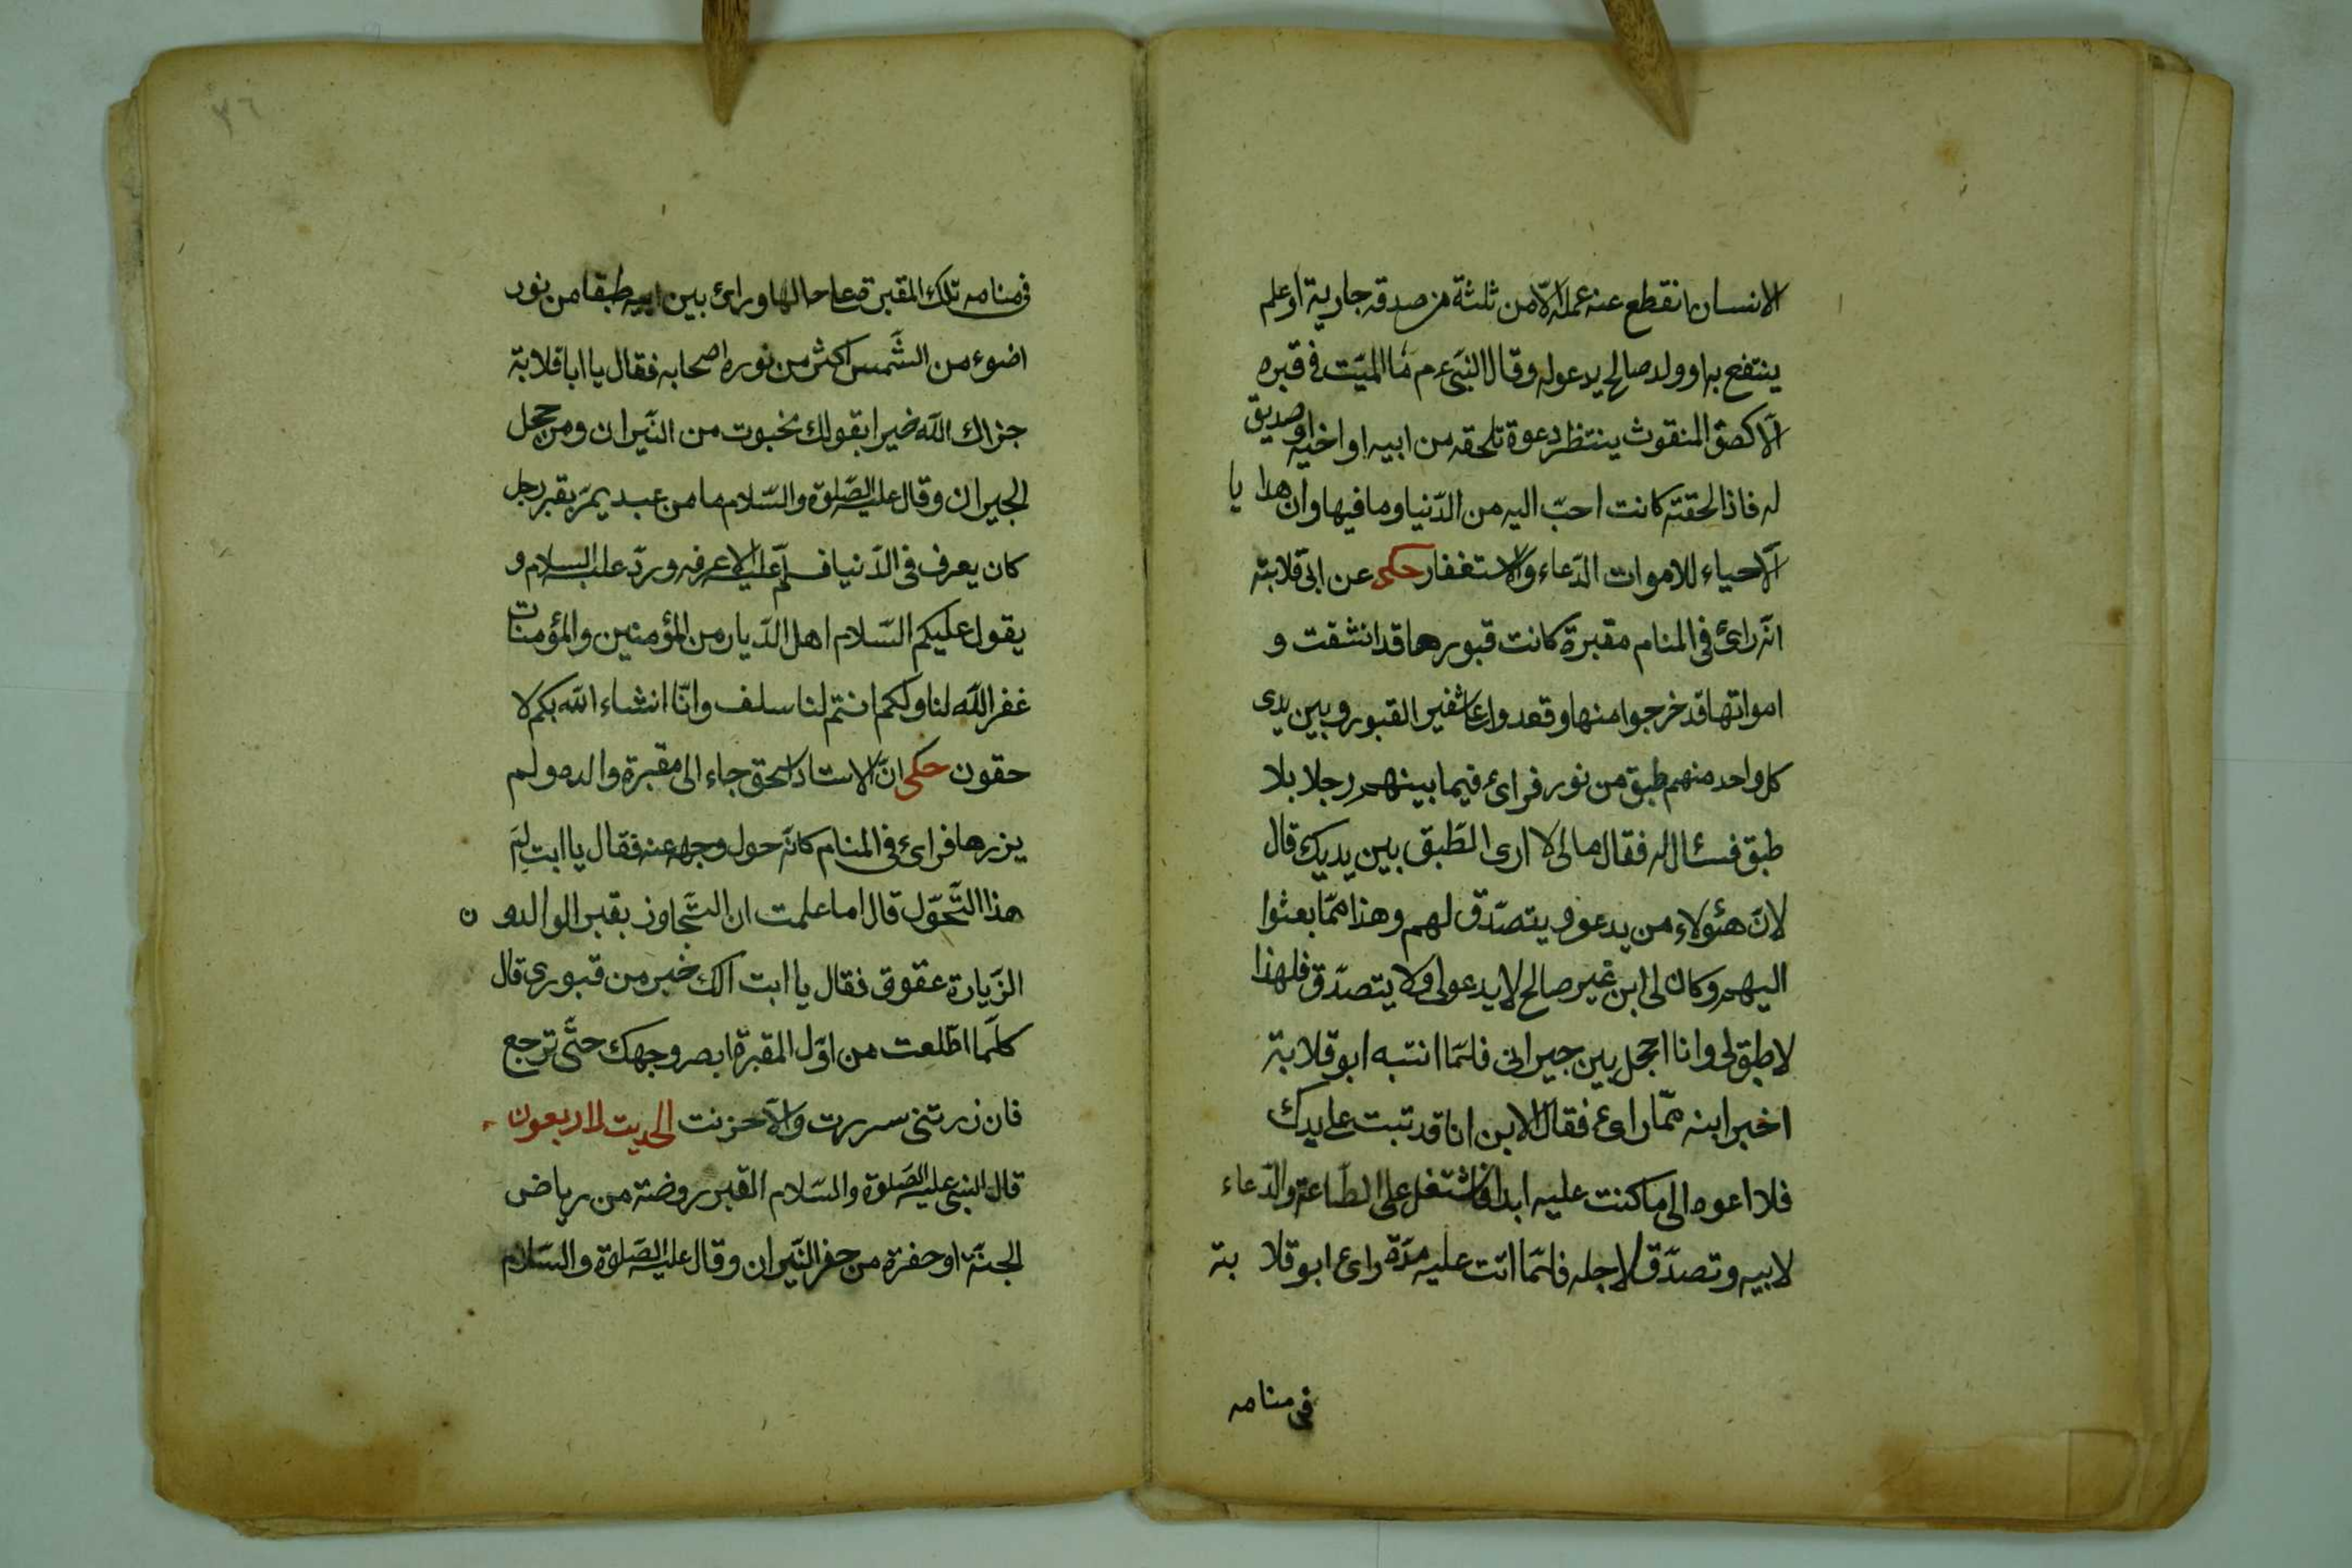 الانسان انقطع عنه عمله الّا من ثلثة من صدقه جارية او علم
ينتفع به او ولد صالح يدعوله وقال النبىّ ءم ما الميّت فى قبره
الّا كصق المنقوث ينتظر دعوة تلحقه من ابيه او اخيه او صديق
له فاذا لحقته كانت احبّ اليه من الدّنيا وما فيها وان هدا يا
الاحياء للاموات الدّعاء والاستغفار حكى عن ابى قلابته
انّه رائ فى المنام مقبرة كانت قبورها قد انشقت و
امواتها قد خرجوا منها وقعدوا على شفير القبور وبين يدى
كل واحد منهم طبق من نور فرائ فيما بينهم رجلا بلا
طبق فسئال له فقال مالى لا ارى الطّبق بين يديك قال
لانّ هئولاء من يدعو ويتصدّق لهم وهذا ممّا بعثوا
اليهم وكان لى ابن غير صالح لا يدعولى ولا يتصدّق فلهذا
لا طبق لى وانا اجحل بين جيرانى فلمّا انتبه ابو قلابة
اخبر ابنه ممّا رائ فقال الابن انا قد تبت على يدك
فلا اعوه الى ما كنت عليه ابدا فاشتغل على الطّاعة والدّعاء
لابيه وتصدّق لاجله فلمّا اتت عليه مدّة رائ ابو قلا بة
فى منامه
٣٦
فى منامه تلك المقبرة على حالها ورائ بين طبقا من نور
اضوء من الشّمس اكثر من نوره اصحابه فقال يا ابا قلابة
جزاك اللّه خيرا بقولك نخبوت من النّيران ومن حجل
الجيران وقال عليه الصّلوة والسّلام ما من عبد يمرّ بقبر رجل
كان يعرف فى الدّنيا فسلّم عليه الا عرفه وردّ عليه السلام و
يقول عليكم السّلام اهل الدّيار من المؤمنين والمؤمنات
غفر اللّه لنا ولكم انتم لنا سلف وانّا انشاء اللّه بكم لا
حقون حكى انّ الاستاد اسحق جاء الى مقبرة والده ولم
يزرها فرائ فى المنام كانّه حول وجهه عنه فقال يا ابت لِمَ
هذا التّحوّل قال اما علمت ان التّجاوز بقبر الوالد دو ن
الزّيارة عقوق فقال يا ابت الك خبر من قبورى قال
كلّما اطّلعت من اوّل المقبرة ابصر وجهك حتّى ترجع
فان زرتنى سررت والّا حزنت الحديت لاربعون
قال النبى عليه الصّلوة والسّلام القبر روضة من رياض
الجنّة او حفرة من حفر النّيران وقال عليه الصّلوة والسّلام